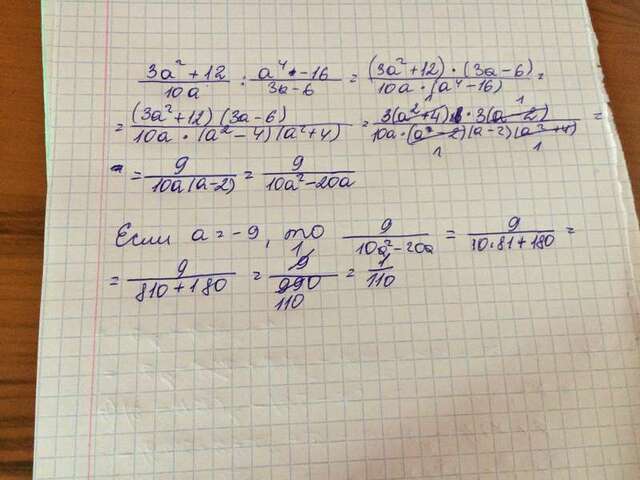 (3a²+12)/(10a) : (a⁴-16)/(3a-6) = ((3a²+12)·(3a-6))/(10a·(a⁴-16)) =
= ((3a²+12)(3a-6))/(10a·(a²-4)(a²+4)) = (3(a²+4)·3(a-2))/(10a·(a-2)(a-2)(a²+4)) =
= 9/(10a(a-2)) = 9/(10a²-20a)
Если a=-9, то 9/(10a²-20a) = 9/(10·81+180) =
= 9/(810+180) = 9/990 = 1/110